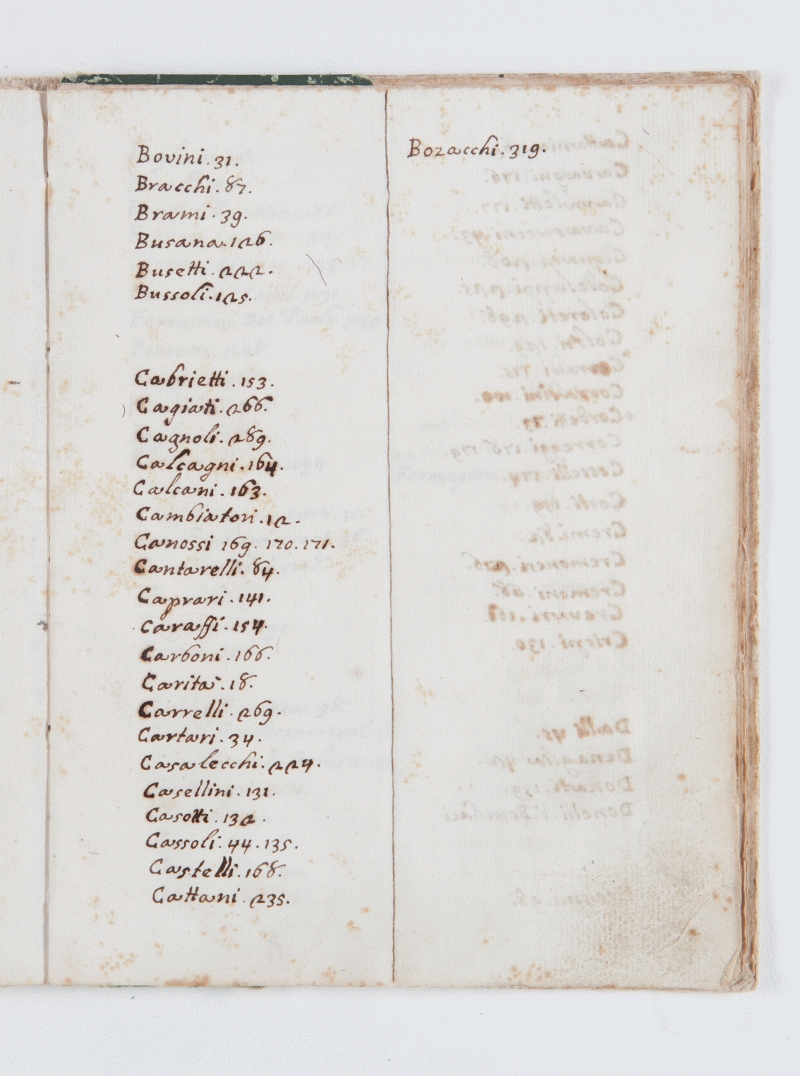 Bovini. 31.
Bracchi. 87.
Brami. 39.
Busana. 126.
Busetti. 222.
Bussoli. 125.
Cabrietti. 153.
Cagiati. 266.
Cagnoli. 289.
Calcagni. 164.
Calcani. 163.
Cambiatori. 12.
Canossi 169. 170. 171.
Cantarelli. 84.
Caprari. 141.
Caraffi. 154.
Carboni. 166.
Carità. 18.
Carrelli. 269.
Cartari. 34.
Casalecchi. 224.
Casellini. 131.
Casotti. 132.
Cassoli. 44. 135.
Castelli. 168.
Cattani. 235.
Bozacchi. 319.